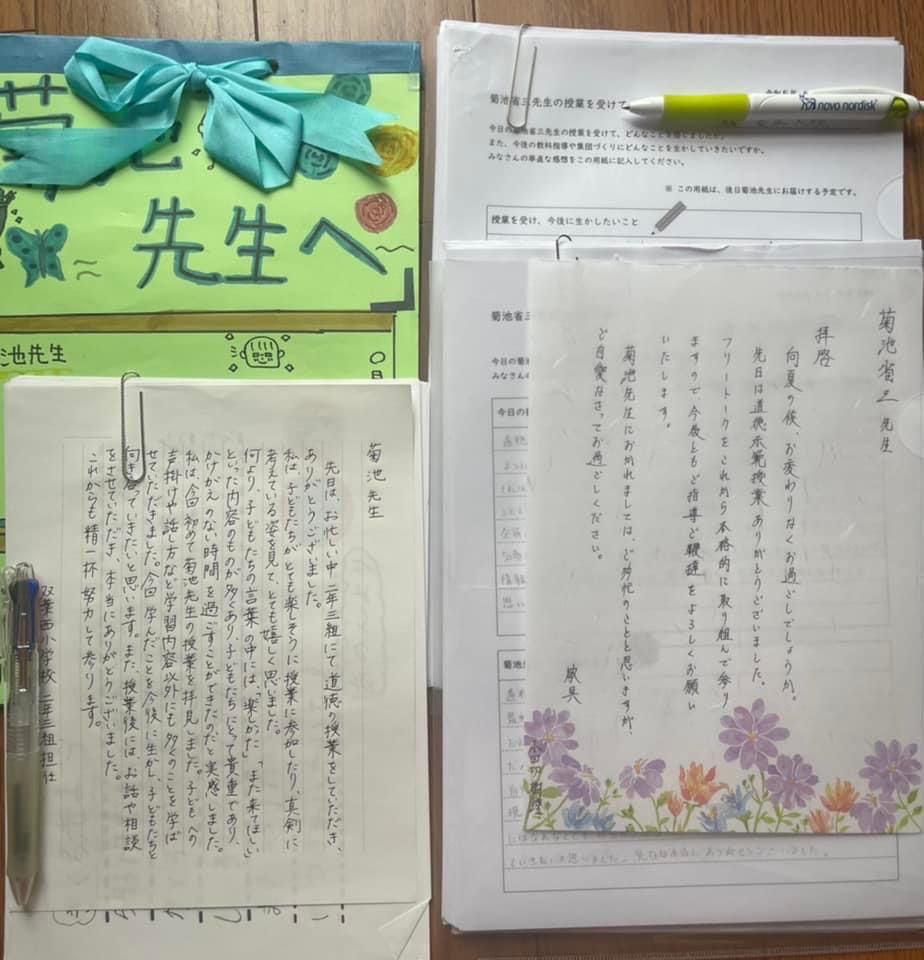 菊池
先生へ
池先生
菊池先生
先日は、お忙しい中二年三組にて道徳の授業をしていただき、
ありがとうございました。
私は、子どもたちがとても楽しそうに授業に参加したり、真剣に
考えている姿を見て、とても嬉しく思いました。
何より、子どもたちの言葉の中には、「楽しかった」「また来てほしい」
といった内容のものが多くあり、子どもたちにとって貴重であり、
かけがえのない時間を過ごすことができたのだと実感しました。
私は、今回初めて菊池先生の授業を拝見しました。子どもへの
声掛けや話し方など学習内容以外にも多くのことを学ば
せていただきました。今回学んだことを今後に生かし、子どもたちと
向き合っていきたいと思います。また、授業後には、お話や相談
をさせていただき、本当にありがとうございました。
これからも精一杯努力して参ります。
双葉西小学校 二年三組担任
菊池省三先生の授業を受けて
novo nordisk
今日の菊池省三先生の授業を受けて、どんなことを
また、今後の教科指導や集団づくりにどんなことを生かしていきたいですか。
みなさんの率直な感想をこの用紙に記入してください。
※ この用紙は、後日菊池先生にお届けする予定です。
授業を受け、今後に生かしたいこと
菊池省三
今日の菊
みなさんの
今日の
菊池先
菊池省三先生
拝啓
向夏の候、お変わりなくお過ごしでしょうか。
先日は道徳示範授業ありがとうございました。
フリートークをこれから本格的に取り組んで参り
ますので、今後ともご指導ご鞭撻をよろしくお願い
いたします。
菊池先生におかれましては、ご多忙のことと思いますが、
ご自愛なさってお過ごしください。
敬具